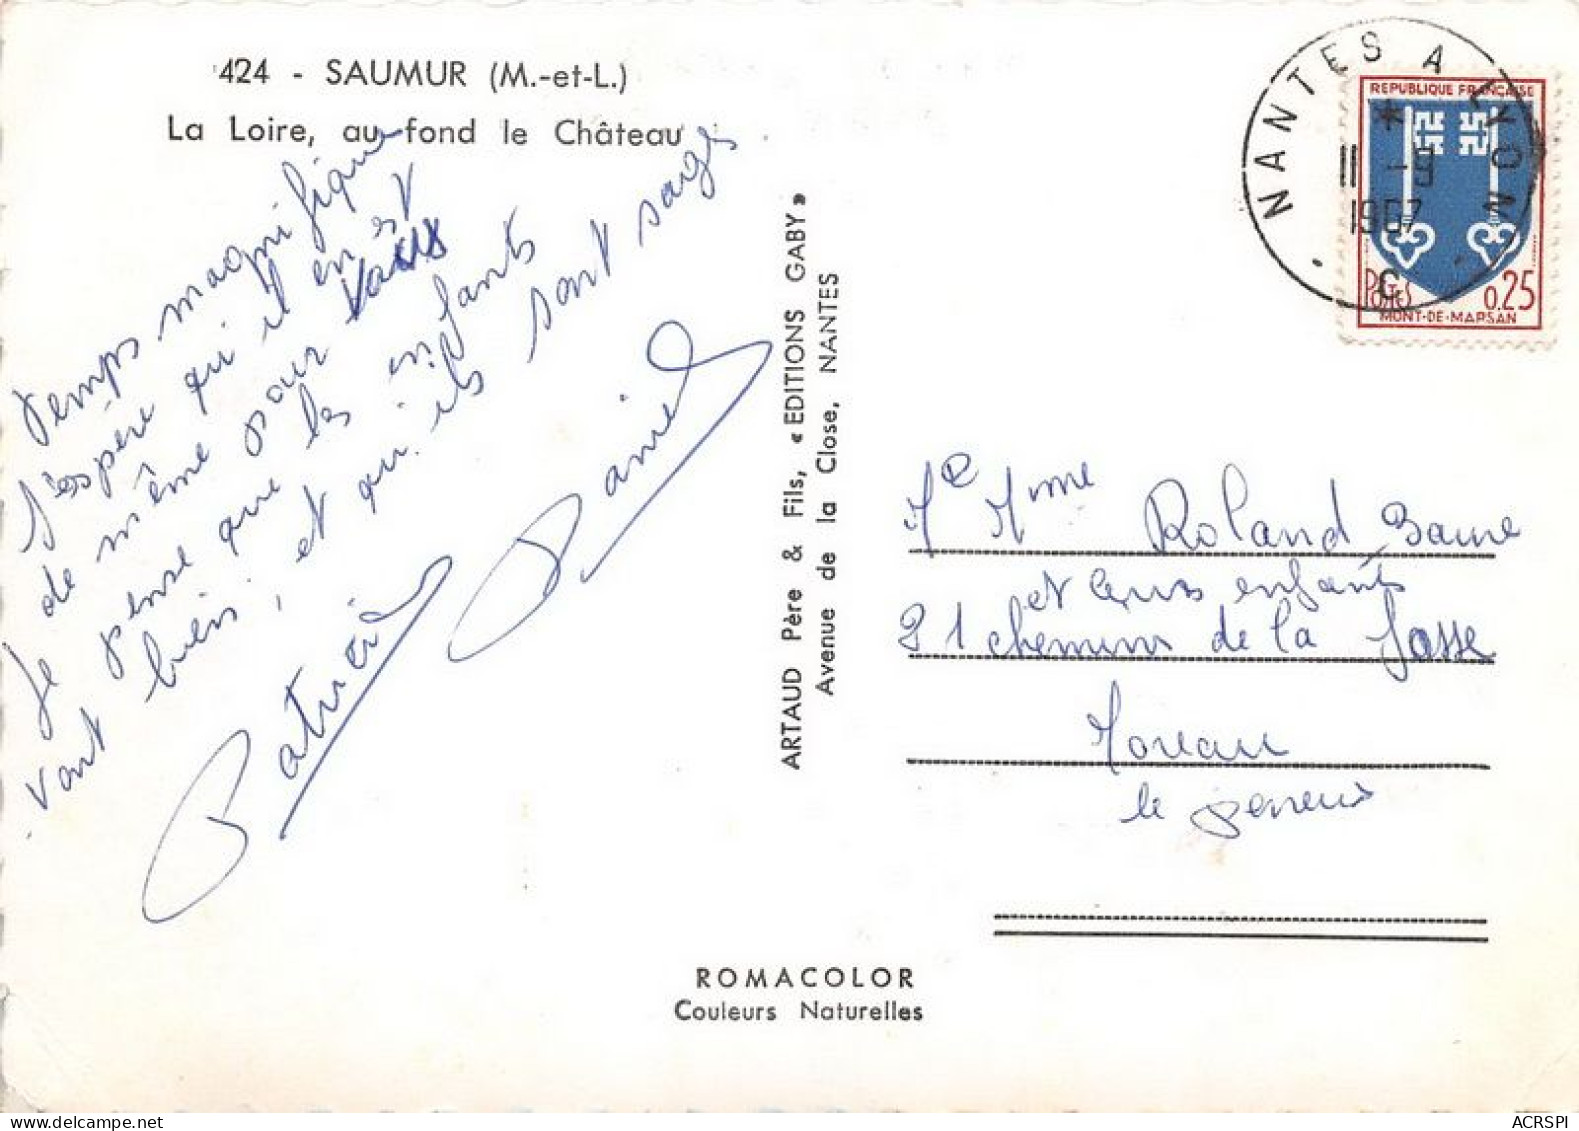 424 - SAUMUR (M.-et-L.)
La Loire, au fond le Château
Temps magnifique
J'espère qu'il en est
de même pour vous
Je pense que les enfants
vont bien, et qu'ils sont sages
Patricia
Daniel
ARTAUD Père & Fils, « EDITIONS GABY »
Avenue de la Close, NANTES
NANTES A LYON
11 -9
1967
C
REPUBLIQUE FRANÇAISE
POSTES 0.25
MONT-DE-MARSAN
Mr Mme Roland
et leurs enfants
21 chemin de la fosse
Moreau
le perreux
ROMACOLOR
Couleurs Naturelles
delcampe.net
ACRSPI